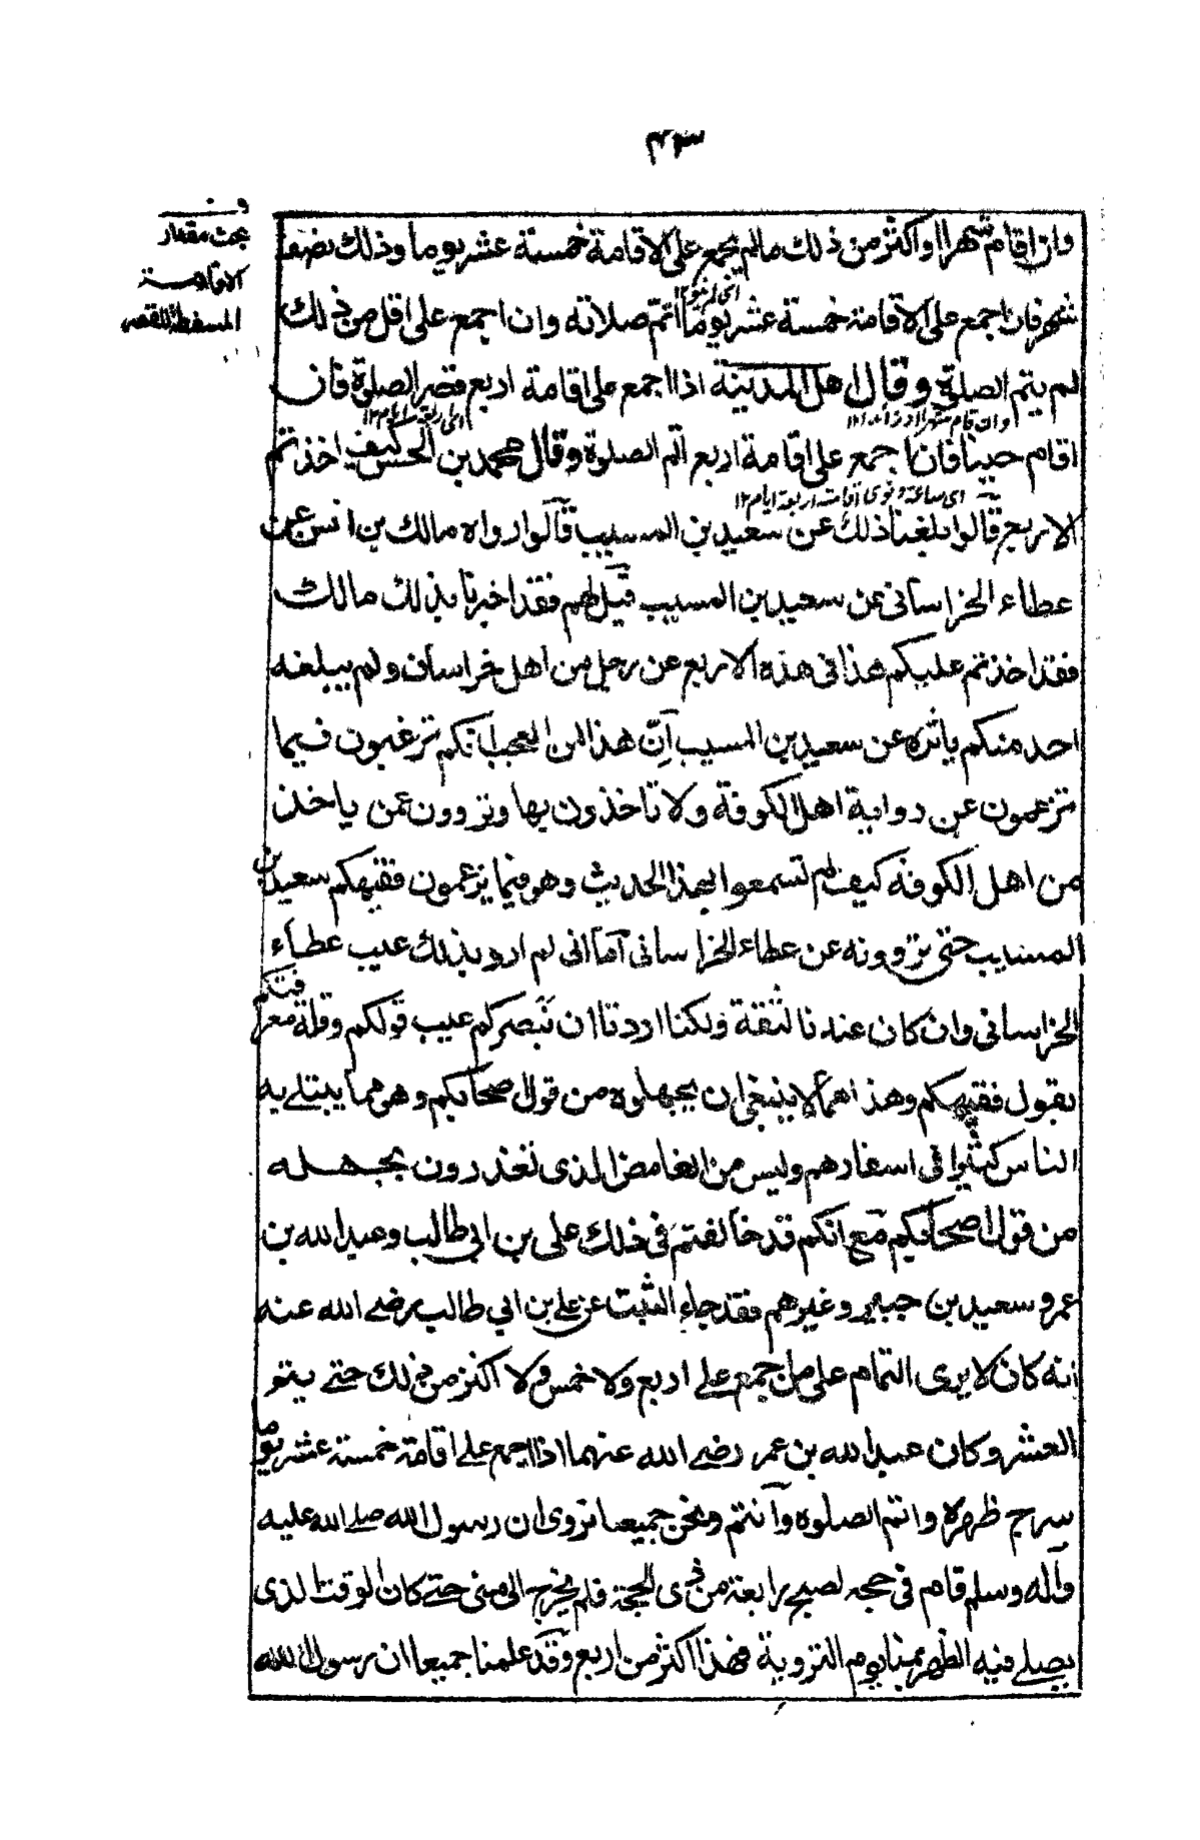 ٤٣
بحث مقدار
الاقامة
المسقطة للقصر
وان اقام شهرا او اكثر من ذلك مالم يجمع على الاقامة خمسة عشر يوما وذلك نصف
شهر فان اجمع على الاقامة خمسة عشر يوما اتم صلاته وان اجمع على اقل من ذلك
لم يتم الصلوة وقال اهل المدينة اذا اجمع على اقامة اربع قصر الصلوة فان
اقام حينا فان اجمع على اقامة اربع اتم الصلوة وقال محمد بن الحسن كيف اخذتم
اى ساعة ونوى اقامت اربعة ايام ١٢
الاربع قالوا بلغنا ذلك عن سعيد بن المسيب قالوا رواه مالك بن انس عن
عطاء الخراسانى عن سعيد بن المسيب قيل لهم فقد اخبرنا بذلك مالك
فقد اخذتم عليكم هذا فى هذه الاربع عن رجل من اهل خراسان ولم يبلغه
احد منكم ياثره عن سعيد بن المسيب ان هذا لمن العجب انكم ترغبون فيما
تزعمون عن رواية اهل الكوفة ولا تاخذون بها وتروون عمن ياخذ
من اهل الكوفة كيف لم تسمعوا بهذا الحديث وهو فيما يزعمون فقيهكم سعيد بن
المسيب حتى تروونه عن عطاء الخراسانى اما انى لم ارد بذلك عيب عطاء
الخراسانى وان كان عندنا لثقة ولكنا اردنا ان نبصركم عيب قولكم وقلة معرفتكم
بقول فقيهكم وهذا مما لا ينبغى ان يجهلوه من قول صحابكم وهو مما يبتلے به
الناس كثيرا فى اسفارهم وليس من الغامض الذى تعذرون بجهله
من قول اصحابكم مع انكم قد خالفتم فى ذلك على بن ابى طالب وعبد الله بن
عمر و سعيد بن جبير وغيرهم فقد جاء الثبت عن على بن ابي طالب رضے الله عنه
انه كان لا يرى التمام على من اجمع علے اربع ولا خمس ولا اكثر من ذلك حتے ينو
العشر وكان عبد الله بن عمر رضے الله عنهما اذا اجمع علے اقامة خمسة عشر يوما
سرح ظهره واتم الصلوة وانتم ونحن جميعا نروى ان رسول الله صلے الله عليه
وآله وسلم قام فى حجه لصبح رابعة من ذى الحجة فلم يخرج الى منى حتے كان الوقت الذى
يصلے فيه الظهر بمنا يوم التروية فهذا اكثر من اربع وقد علمنا جميعا ان رسول الله